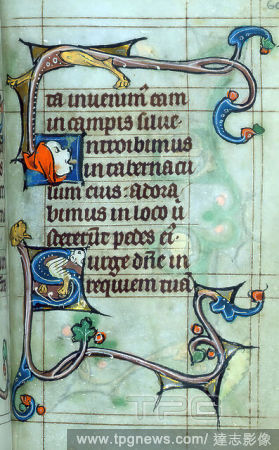 ta invenim̄ eam
in campis silve
Introibimus
in tabernacu
lum eius: adora
bimus in loco u
steterūt pedes eiˀ.
Surge dn̄e in
requiem tuā
TPG
www.tpgnews.com/ 達志影像